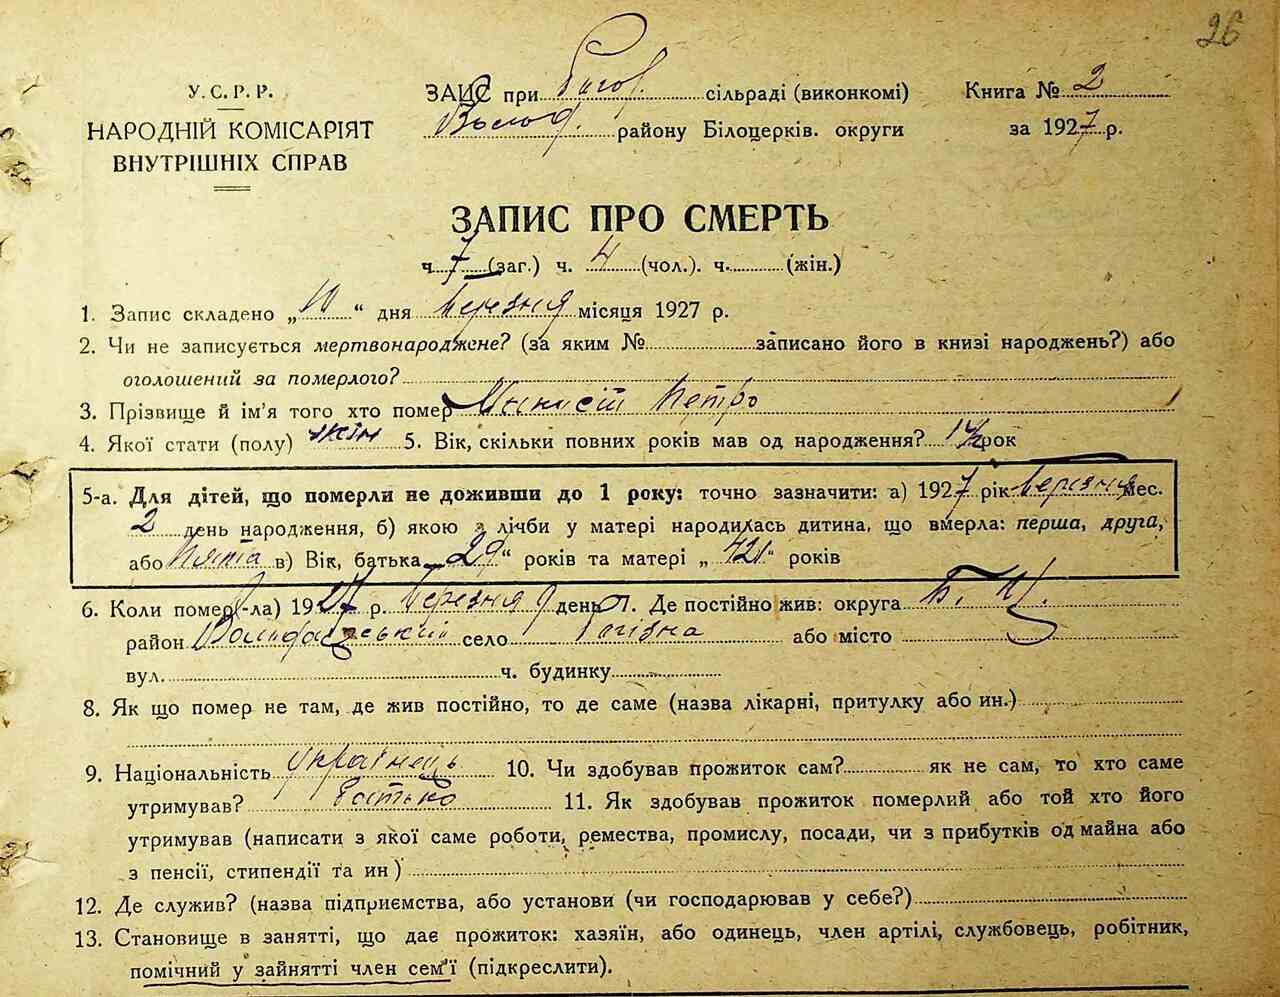 26
У. С. Р. Р.
НАРОДНІЙ КОМІСАРІЯТ
ВНУТРІШНІХ СПРАВ
ЗАЦС при Рогоз. сільраді (виконкомі)
Волод. району Білоцерків. округи
Книга № 2
за 1927 р.
ЗАПИС ПРО СМЕРТЬ
ч. 7 (заг.) ч. 4 (чол.). ч. (жін.)
1. Запис складено „10“ дня березня місяця 1927 р.
2. Чи не записується мертвонароджене? (за яким № записано його в книзі народжень?) або
оголошений за померлого?
3. Прізвище й ім'я того хто помер Петро
4. Якої стати (полу) 5. Вік, скільки повних років мав од народження? рок
5-а. Для дітей, що померли не доживши до 1 року: точно зазначити: а) 1927 рік березня мес.
2 день народження, б) якою з лічби у матері народилась дитина, що вмерла: перша, друга,
або пята в) Вік, батька „29“ років та матері „ “ років
6. Коли помер(-ла) 1927 р. березня 9 день 7. Де постійно жив: округа Б. Ц.
район Володарський село Рогізна або місто
вул. ч. будинку
8. Як що помер не там, де жив постійно, то де саме (назва лікарні, притулку або ин.)
9. Національність українець 10. Чи здобував прожиток сам? як не сам, то хто саме
утримував? батько 11. Як здобував прожиток померлий або той хто його
утримував (написати з якої саме роботи, ремества, промислу, посади, чи з прибутків од майна або
з пенсії, стипендії та ин)
12. Де служив? (назва підприємства, або установи (чи господарював у себе?)
13. Становище в занятті, що дає прожиток: хазяїн, або одинець, член артілі, службовець, робітник,
помічний у зайнятті член сем'ї (підкреслити).